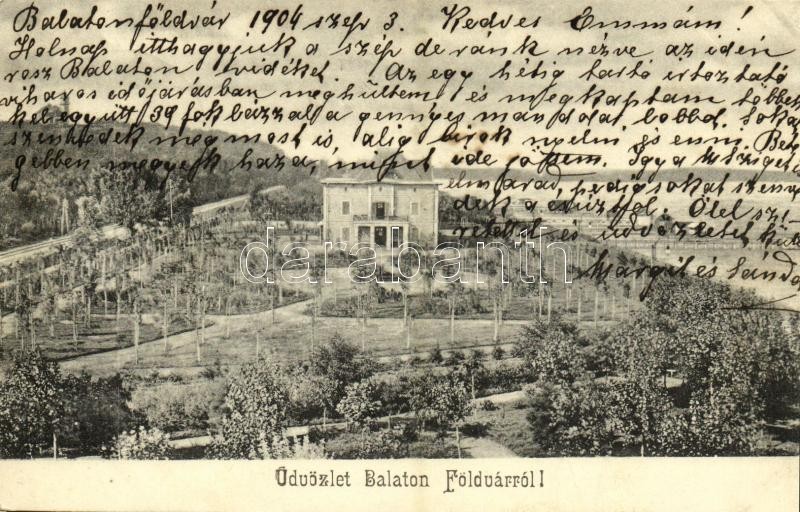 Balatonföldvár 1904 szep 3. Kedves Emmám!
Holnap itthagyjuk a szép de ránk nézve az idén
rosz Balaton vidéket. Az egy hétig tartó irtoztató
viharos időjárásban meghültem és megkaptam többek
kel együtt 39 fok lázzal a gennyes mandola lobbot. Soka
szenvedek meg most is, alig birok nyelni és enni. Bete
gebben megyek haza, mint ide jöttem. Igy a sziget
elmarad, pedig sokat szenve
dek a torkomtól. Ölel sz
retettel és üdvözlettel kül
Margit és Sándor
darabanth
Üdvözlet Balaton Földvárról!